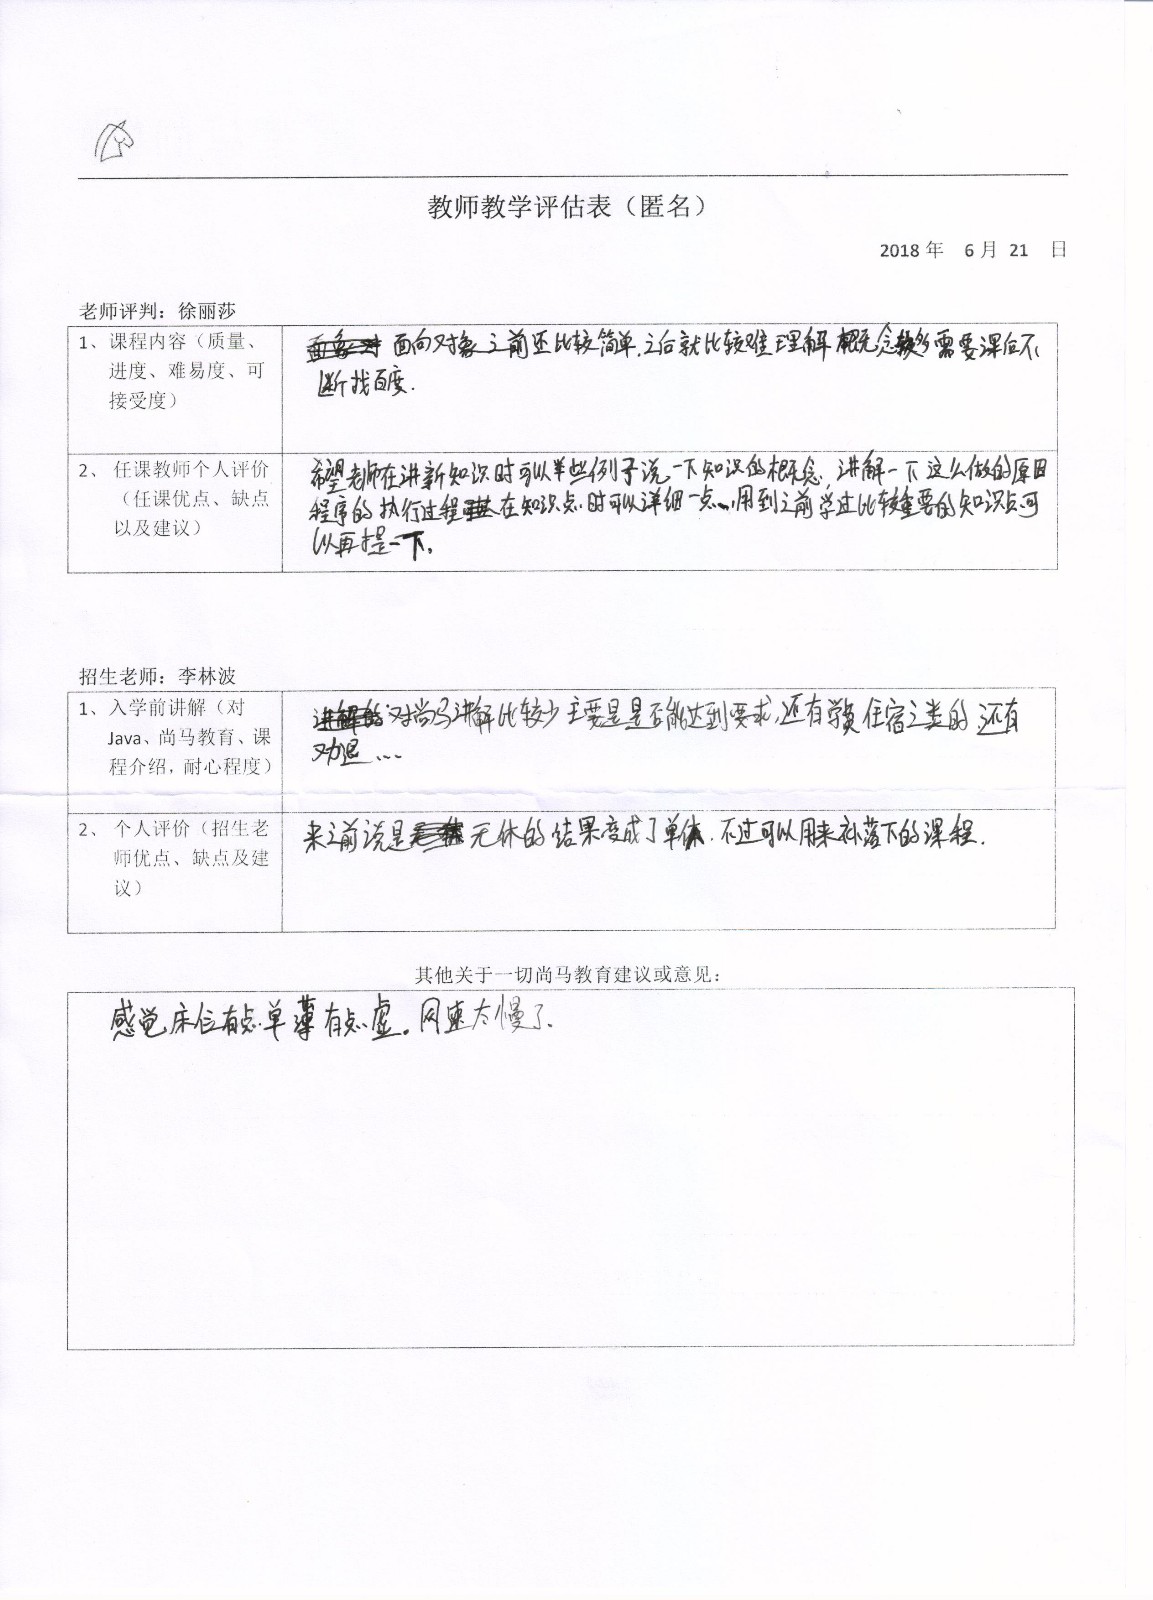 教师教学评估表（匿名）
2018 年 6 月 21 日
老师评判：徐丽莎
1、课程内容（质量、
进度、难易度、可
接受度）
面向对象之前还比较简单，之后就比较难理解 概念较多需要课后不
断找百度.
2、任课教师个人评价
（任课优点、缺点
以及建议）
希望老师在讲新知识时可以举些例子说一下知识的概念，讲解一下这么做的原因
程序的执行过程 在知识点时可以详细一点，用到之前学过比较重要的知识点可
以再提一下。
招生老师：李林波
1、入学前讲解（对
Java、尚马教育、课
程介绍，耐心程度）
对尚马讲解比较少 主要是是否能达到要求，还有学费住宿之类的 还有
劝退...
2、个人评价（招生老
师优点、缺点及建
议）
来之前说是 无休的 结果变成了单休. 不过可以用来补落下的课程.
其他关于一切尚马教育建议或意见：
感觉床位有点单薄 有点虚。网速太慢了.